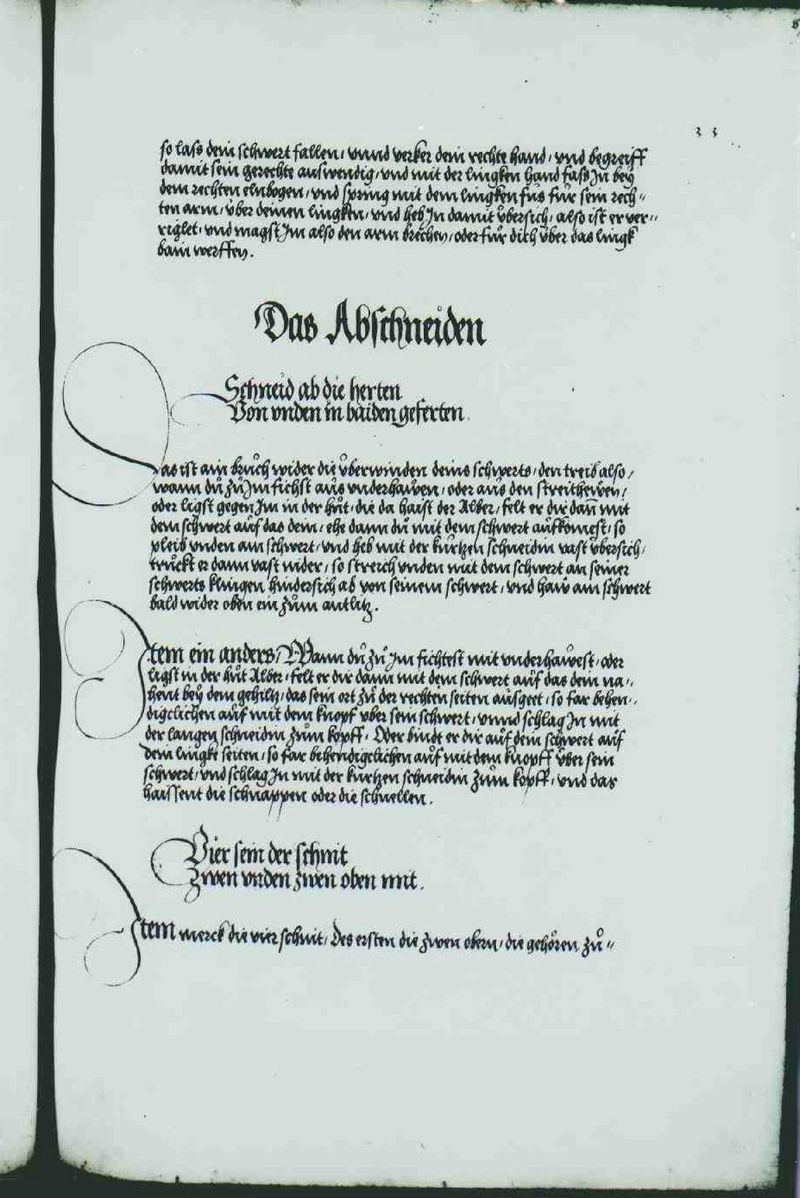 33
so lass dein schwert fallen / vnnd verker dein rechte hand / vnd begreiff
damit sein gerechte auswendig / vnd mit der lingken hand fass Jn bey
dem rechten elnbogen / vnd spring mit dem lingken fůs für sein rech=
ten arm / über deinen lingken / vnd heb Jn damit übersich / also ist er ver=
riglet / vnd magst Jm also den arm brechen / oder für dich über das lingk
bain werffen.
Das Abschneiden
Schneid ab die herten
Von vnden in baiden geferten
Das ist ain bruch wider die überwinden deins schwerts / den treib also /
wann dů zů Jm fichst aus vnderhawen / oder aus den streitheẅen /
oder ligst gegen Jm in der hůt / die da haist der Alber / felt er dir dan mit
dem schwert auf das dein / ehe dann dů mit dem schwert aufkomest / so
pleib vnden am schwert / vnd heb mit der kurtzen schneidin vast übersich /
truckt er dann vast nider / so streich vnden mit dem schwert an seiner
schwerts klingen hindersich ab von seinem schwert / vnd haw am schwert
bald wider oben ein zům antlitz.
Jtem ein anders / Wann dů zů Jm fichtest mit vnderhaẅest / oder
ligst in der hůt Alber / felt er dir dann mit dem schwert auf das dem na=
hent bey dem gehiltz / das sein ort zů der rechten seiten ausgeet / so far behen=
digclichen auf mit dem knopf vber sein schwert / vnnd schlag Jn mit
der langen schneidin zům kopff. Oder bindt er dir auf dem schwert auf
dein lingke seiten / so far behendigclichen auf mit dem knopff über sein
schwert / vnd schlag Jn mit der kurtzen schneidin zům kopff / vnd das
haissent die schnappen oder die schnellen.
Vier sein der schnit
Zwen vnden zwen oben mit.
Jtem merck die vier schnit / Des ersten die zwen obern / die gehören zů=